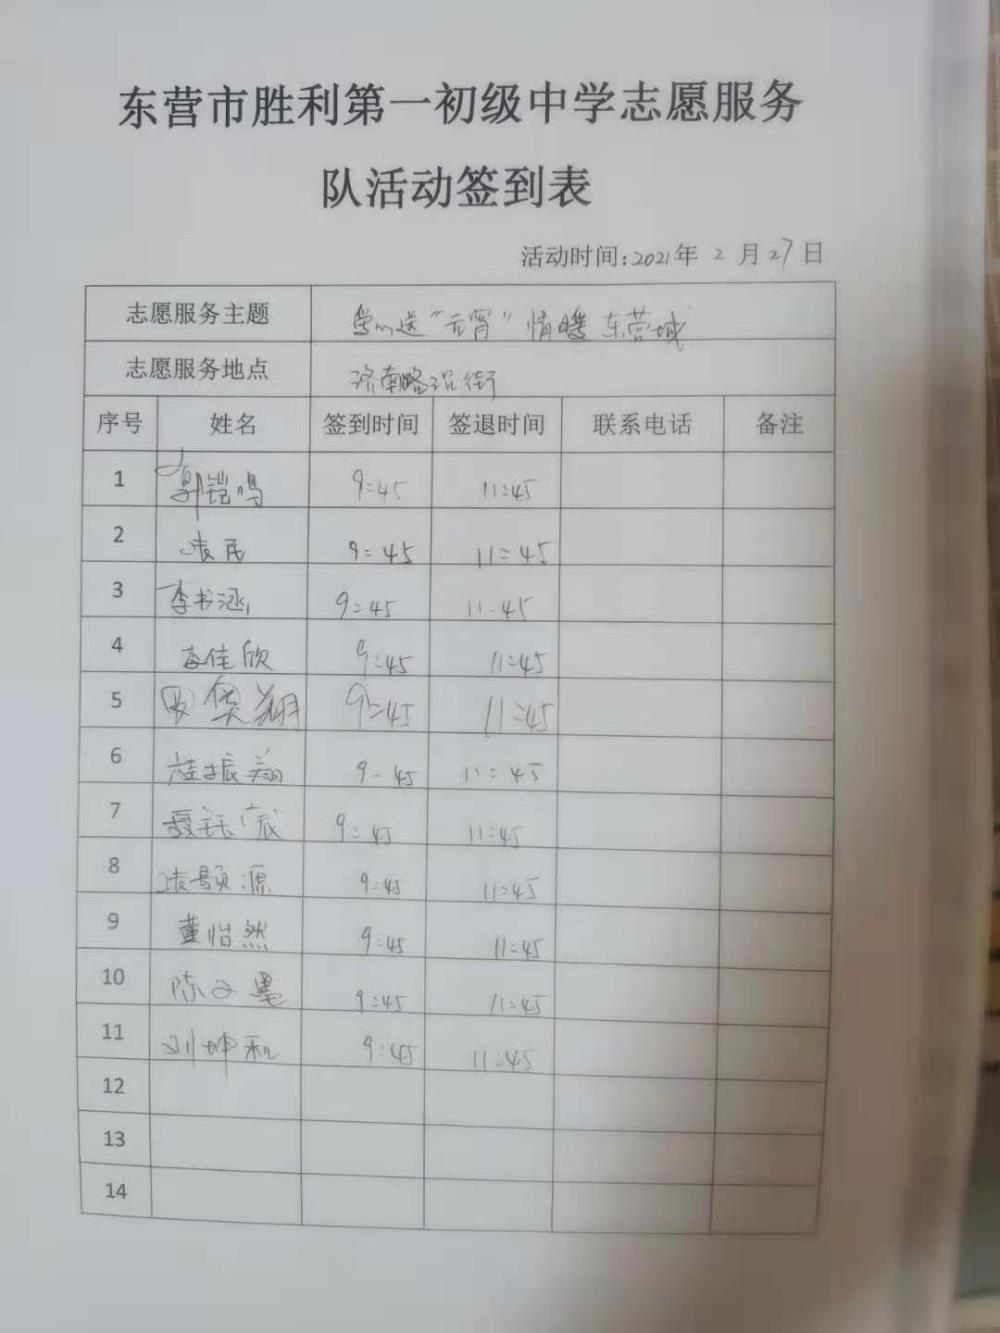 东营市胜利第一初级中学志愿服务
队活动签到表
活动时间:2021年 2 月 27 日
志愿服务主题 送"元宵"情暖东营城
志愿服务地点 济南路沿街
序号 姓名 签到时间 签退时间 联系电话 备注
1 郭铠鸣 9:45 11:45
2 凌民 9:45 11:45
3 李书涵 9:45 11:45
4 李佳欣 9:45 11:45
5 翔 9:45 11:45
6 振翔 9:45 11:45
7 9:45 11:45
8 凌颢源 9:45 11:45
9 董怡然 9:45 11:45
10 陈文墨 9:45 11:45
11 刘坤和 9:45 11:45
12
13
14